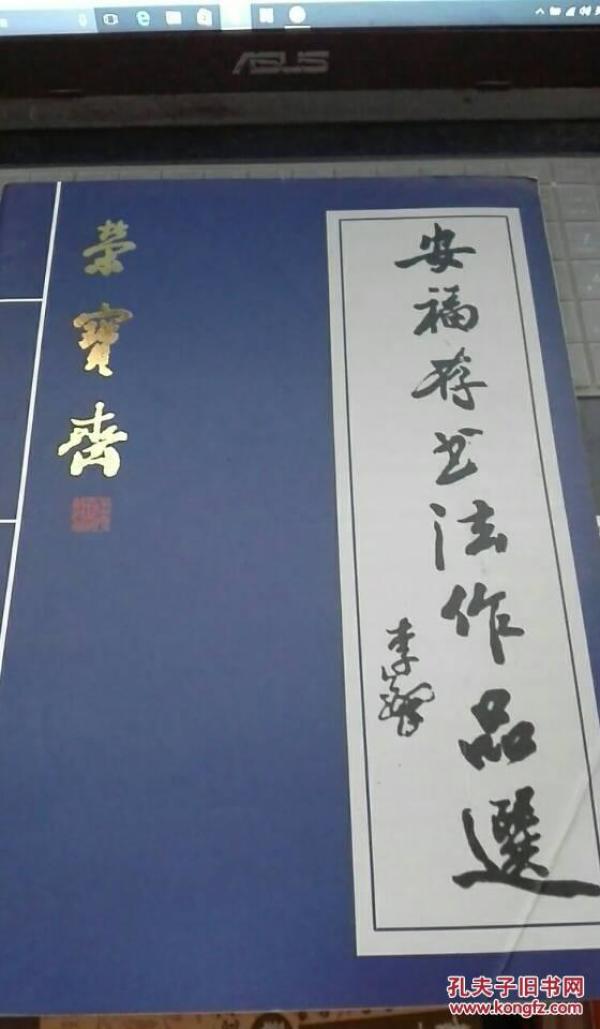 ASUS
榮寶齋
安福存书法作品選
李鐸
孔夫子旧书网
www.kongfz.com